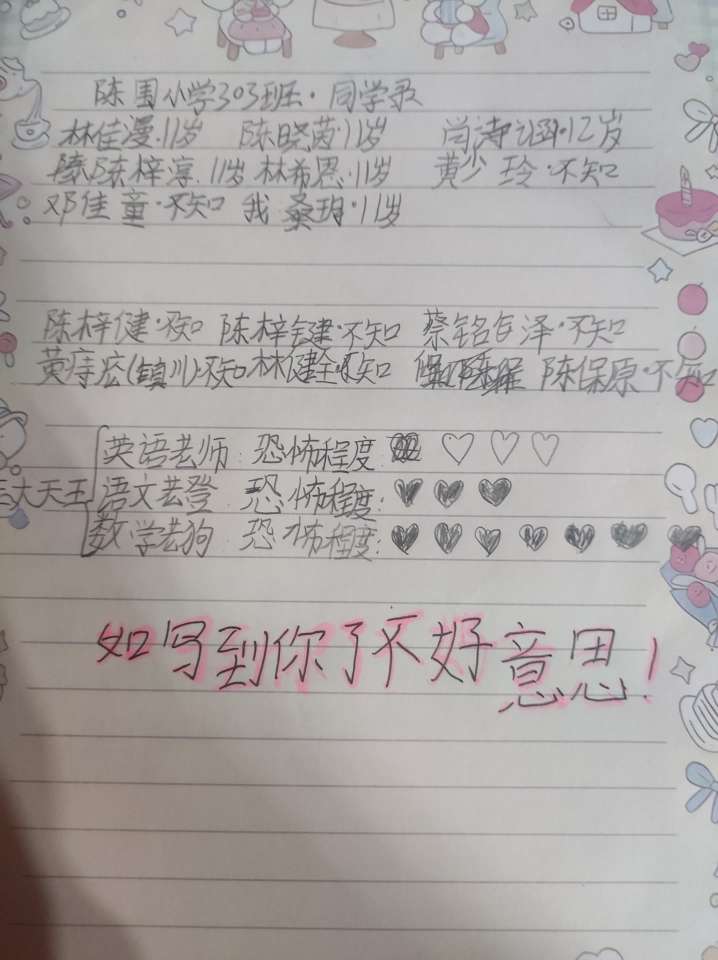 陈围小学303班·同学录
林佳漫·11岁 陈晓茵·11岁 尚诗涵·12岁
陈梓淳·11岁 林希恩·11岁 黄少玲·不知
邓佳童·不知 我 桑玥·11岁
陈梓健·不知 陈梓键·不知 蔡铭泽·不知
黄庠宏(镇川)·不知 林健全·不知 陈保原·不知
三大天王
英语老师:恐怖程度:♡♡♡
语文老登:恐怖程度:♥♥♥
数学老狗:恐怖程度:♥♥♥♥♥♥♥
如写到你了不好意思!